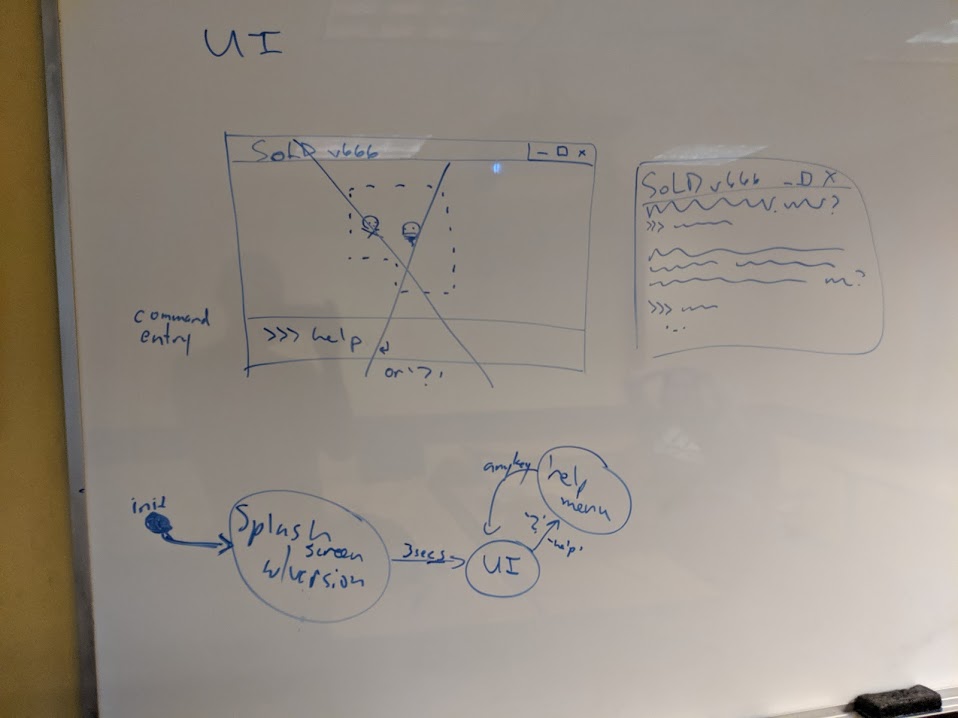 UI
SoLD v666 - □ x
command
entry
>>> help
or '?'
SoLD v666 - □ X
>>>
>>>
...
init
Splash
screen
w/version
3secs
UI
any key
'?'
'help'
help
menu